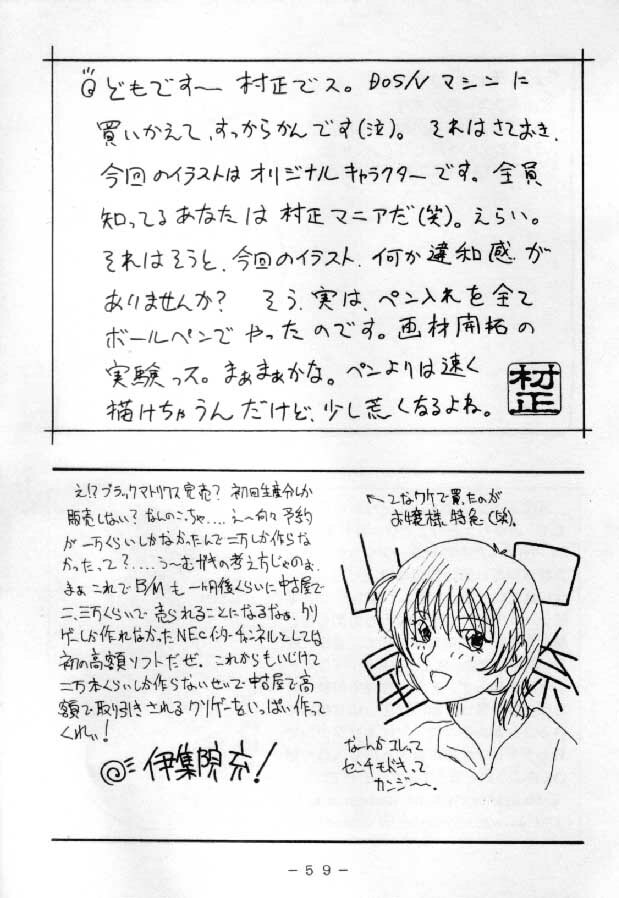 どもです〜 村正でス。 DOS/V マシンに
買いかえて、すっからかんです(泣)。 それはさておき、
今回のイラストは オリジナル キャラクターです。 全員
知ってる あなたは 村正マニアだ(笑)。えらい。
それはそうと、今回のイラスト、何か違和感が
ありませんか? そう、実は、ペン入れを全て
ボールペンで やったのです。画材開拓の
実験っス。まぁまぁかな。ペンよりは速く
描けちゃうんだけど、少し荒くなるよね。
村正
え!?ブラックマトリクス完売? 初回生産分しか
販売しない? なんのこっちゃ....え〜何々予約
が一万くらいしかなかったんで二万しか作らな
かったって?....う〜む
の考え方じゃのぉ、
まぁこれでB/Mも一ヶ月後くらいに中古屋で
二、三万くらいで売られることになるなぁ、クソ
ゲーしか作れなかったNECインターチャンネルとしては
初の高額ソフトだぜ。これからもいじけて
二万本くらいしか作らないせいで中古屋で高
額で取引きされるクソゲーをいっぱい作って
くれい!
伊集院 充!
←てなワケで買ったのが
お嬢様特急(笑)。
な〜んかコレって
センチモドキって
カンジ〜〜。
-59-